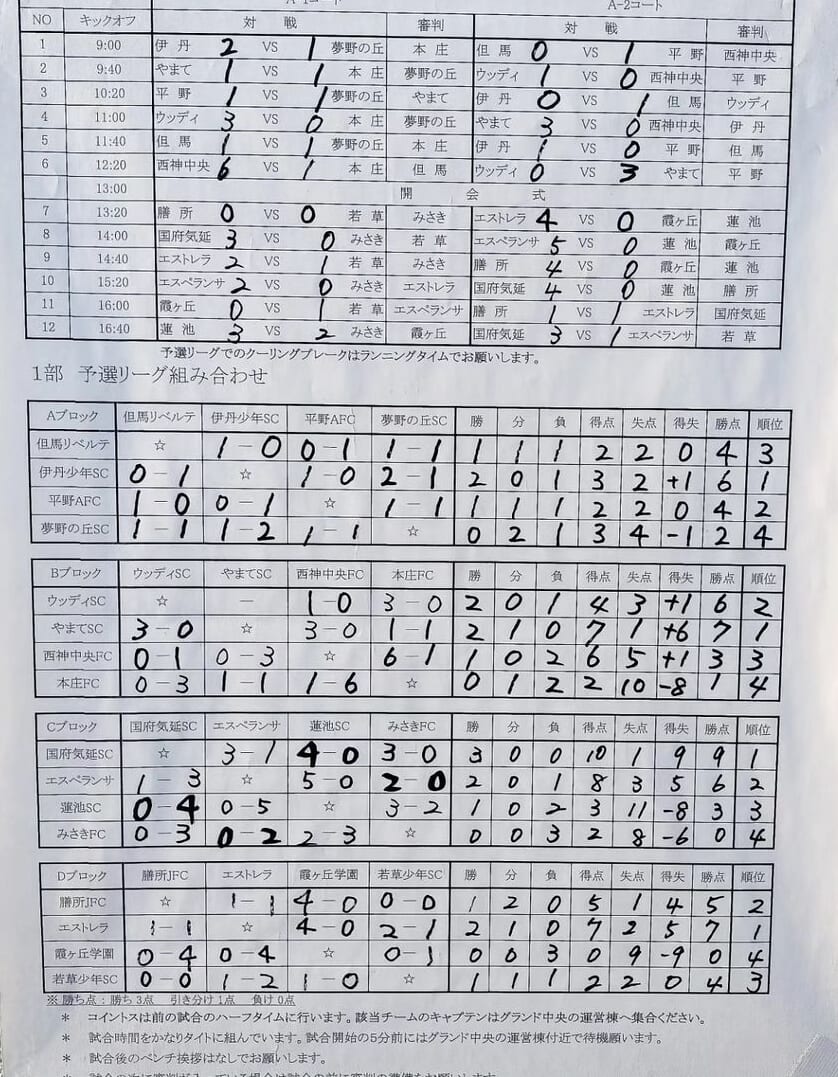 A-1コート A-2コート
NO キックオフ 対 戦 審判 対 戦 審判
1 9:00 伊 丹 2 VS 1 夢野の丘 本 庄 但 馬 0 VS 1 平 野 西神中央
2 9:40 やまて 1 VS 1 本 庄 夢野の丘 ウッディ 1 VS 0 西神中央 平 野
3 10:20 平 野 1 VS 1 夢野の丘 やまて 伊 丹 0 VS 1 但 馬 ウッディ
4 11:00 ウッディ 3 VS 0 本 庄 夢野の丘 やまて 3 VS 0 西神中央 伊 丹
5 11:40 但 馬 1 VS 1 夢野の丘 本 庄 伊 丹 1 VS 0 平 野 但 馬
6 12:20 西神中央 6 VS 1 本 庄 但 馬 ウッディ 0 VS 3 やまて 平 野
13:00 開 会 式
7 13:20 膳 所 0 VS 0 若 草 みさき エストレラ 4 VS 0 霞ヶ丘 蓮 池
8 14:00 国府気延 3 VS 0 みさき 若 草 エスペランサ 5 VS 0 蓮 池 霞ヶ丘
9 14:40 エストレラ 2 VS 1 若 草 みさき 膳 所 4 VS 0 霞ヶ丘 蓮 池
10 15:20 エスペランサ 2 VS 0 みさき エストレラ 国府気延 4 VS 0 蓮 池 膳 所
11 16:00 霞ヶ丘 0 VS 1 若 草 エスペランサ 膳 所 1 VS 1 エストレラ 国府気延
12 16:40 蓮 池 3 VS 2 みさき 霞ヶ丘 国府気延 3 VS 1 エスペランサ 若 草
予選リーグでのクーリングブレークはランニングタイムでお願いします。
1部 予選リーグ組み合わせ
Aブロック 但馬リベルテ 伊丹少年SC 平野AFC 夢野の丘SC 勝 分 負 得点 失点 得失 勝点 順位
但馬リベルテ ☆ 1-0 0-1 1-1 1 1 1 2 2 0 4 3
伊丹少年SC 0-1 ☆ 1-0 2-1 2 0 1 3 2 +1 6 1
平野AFC 1-0 0-1 ☆ 1-1 1 1 1 2 2 0 4 2
夢野の丘SC 1-1 1-2 1-1 ☆ 0 2 1 3 4 -1 2 4
Bブロック ウッディSC やまてSC 西神中央FC 本庄FC 勝 分 負 得点 失点 得失 勝点 順位
ウッディSC ☆ - 1-0 3-0 2 0 1 4 3 +1 6 2
やまてSC 3-0 ☆ 3-0 1-1 2 1 0 7 1 +6 7 1
西神中央FC 0-1 0-3 ☆ 6-1 1 0 2 6 5 +1 3 3
本庄FC 0-3 1-1 1-6 ☆ 0 1 2 2 10 -8 1 4
Cブロック 国府気延SC エスペランサ 蓮池SC みさきFC 勝 分 負 得点 失点 得失 勝点 順位
国府気延SC ☆ 3-1 4-0 3-0 3 0 0 10 1 9 9 1
エスペランサ 1-3 ☆ 5-0 2-0 2 0 1 8 3 5 6 2
蓮池SC 0-4 0-5 ☆ 3-2 1 0 2 3 11 -8 3 3
みさきFC 0-3 0-2 2-3 ☆ 0 0 3 2 8 -6 0 4
Dブロック 膳所JFC エストレラ 霞ヶ丘学園 若草少年SC 勝 分 負 得点 失点 得失 勝点 順位
膳所JFC ☆ 1-1 4-0 0-0 1 2 0 5 1 4 5 2
エストレラ 1-1 ☆ 4-0 2-1 2 1 0 7 2 5 7 1
霞ヶ丘学園 0-4 0-4 ☆ 0-1 0 0 3 0 9 -9 0 4
若草少年SC 0-0 1-2 1-0 ☆ 1 1 1 2 2 0 4 3
※ 勝ち点 : 勝ち 3点 引き分け 1点 負け 0点
* コイントスは前の試合のハーフタイムに行います。該当チームのキャプテンはグランド中央の運営棟へ集合ください。
* 試合時間をかなりタイトに組んでいます。試合開始の5分前にはグランド中央の運営棟付近で待機願います。
* 試合後のベンチ挨拶はなしでお願いします。